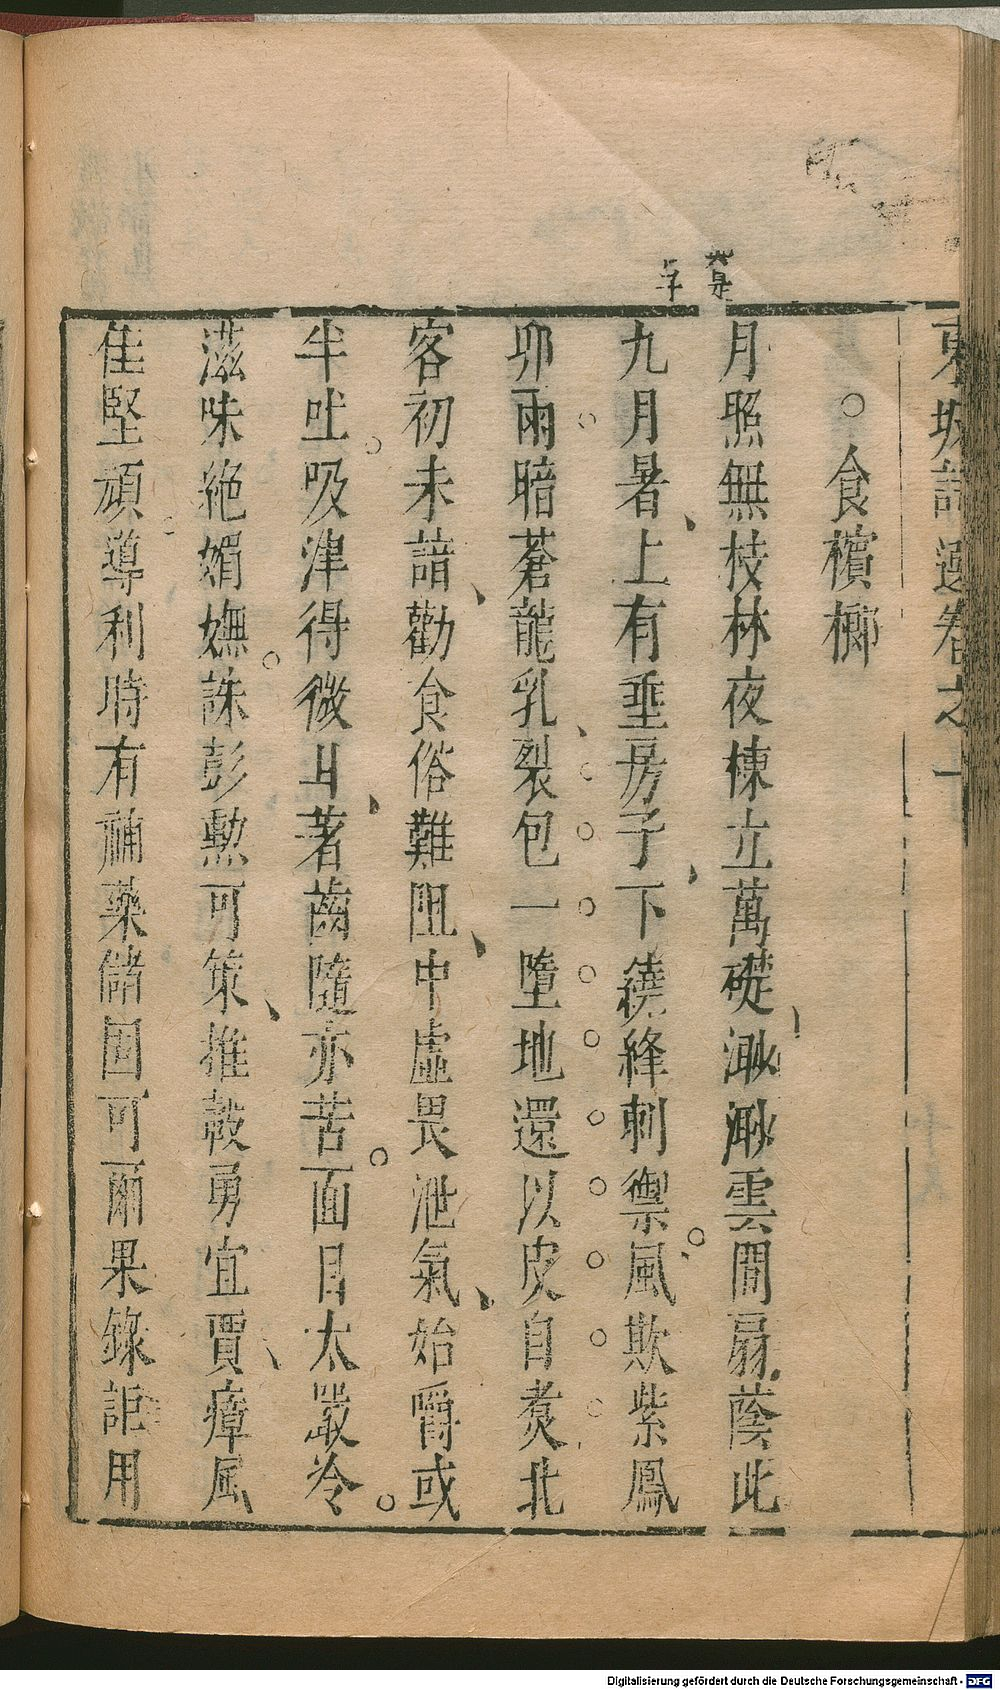 食檳榔
月照無枝林夜棟立萬礎渺渺雲間扇蔭此
九月暑上有垂房子下繞絳刺禦風欺紫鳳
卵雨暗蒼龍乳裂包一墮地還以皮自煑北
客初未諳勸食俗難阻中虛畏泄氣始嚼或
半吐吸津得微甘著齒隨亦苦面目太嚴冷
滋味絶媚嫵誅彭勲可策推轂勇宜賈瘴風
佳堅頑導利時有補藥儲固可爾果錄詎用
Digitalisierung gefördert durch die Deutsche Forschungsgemeinschaft - DFG